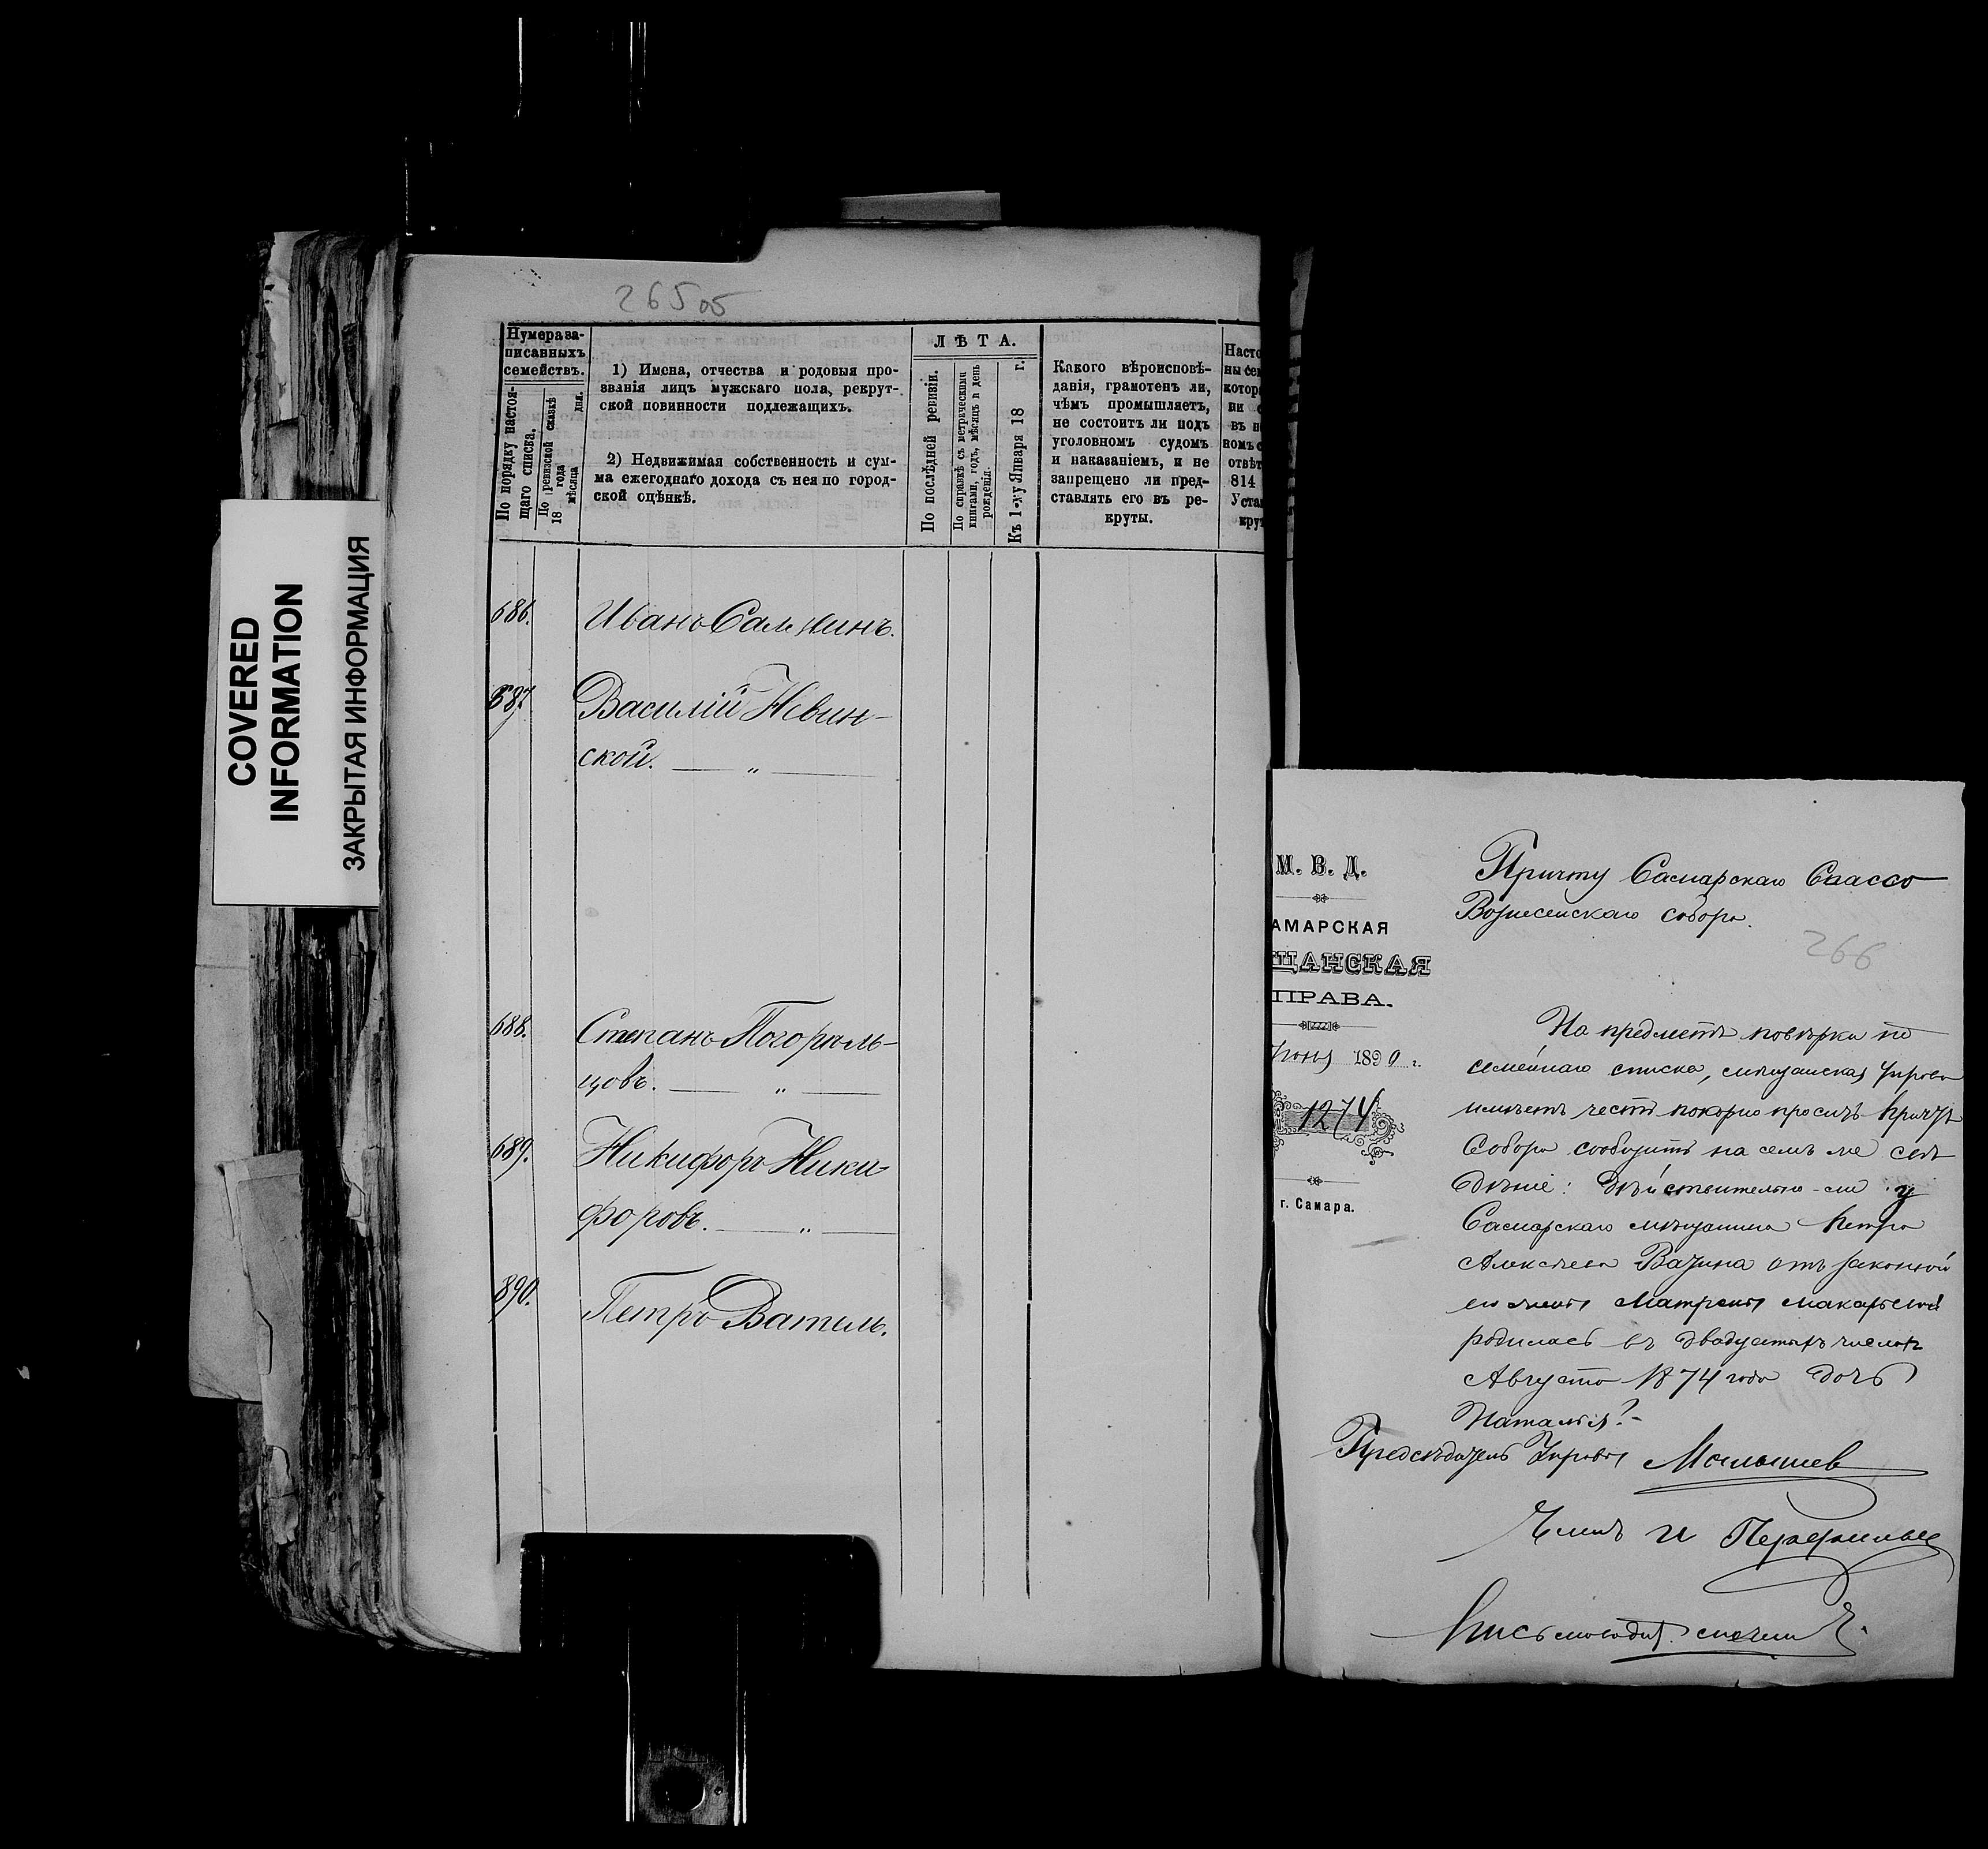 COVERED
INFORMATION
ЗАКРЫТАЯ ИНФОРМАЦИЯ
265 об
Нумера за-
писанныхъ
семействъ.
По порядку настоя-
щаго списка.
По ревизской сказкѣ
18 года
мѣсяца дня.
1) Имена, отчества и родовыя про-
званія лицъ мужскаго пола, рекрут-
ской повинности подлежащихъ.
2) Недвижимая собственность и сум-
ма ежегоднаго дохода съ нея по город-
ской оцѣнкѣ.
ЛѢТА.
По послѣдней ревизіи.
По справкѣ съ метрическими
книгами, годъ, мѣсяцъ и день
рожденія.
Къ 1-му Января 18 г.
Какого вѣроисповѣ-
данія, грамотенъ ли,
чѣмъ промышляетъ,
не состоитъ ли подъ
уголовномъ судомъ
и наказаніемъ, и не
запрещено ли пред-
ставлять его въ ре-
круты.
Насто
ны сем
котор
ни
въ н
номъ с
отвѣт
814
Уста
крут
686. Иванъ Салминъ.
687. Василій Невин-
ской. — „ —
688. Степанъ Погорѣль-
цовъ. — „ —
689. Никифоръ Ники-
форовъ. — „ —
890. Петръ Ватель.
М. В. Д.
АМАРСКАЯ
ЩАНСКАЯ
ПРАВА.
Іюня 1890 г.
1274
г. Самара.
Причту Самарскаго Спассо
Вознесенскаго собора.
266
На предметъ повѣрки по
семейнаго списка, мѣщанская Управа
имѣетъ честь покорно просить Причтъ
Собора сообщить на семъ же свѣ
дѣніе: дѣйствительно-ли у
Самарскаго мѣщанина Петра
Алексѣева Вазина отъ законной
его жены Матрены Макарьевой
родилась въ двадцатыхъ числахъ
Августа 1874 года дочь
Наталья?-
Предсѣдатель Управы Малышев
Членъ И Перфильев
Письмоводит.